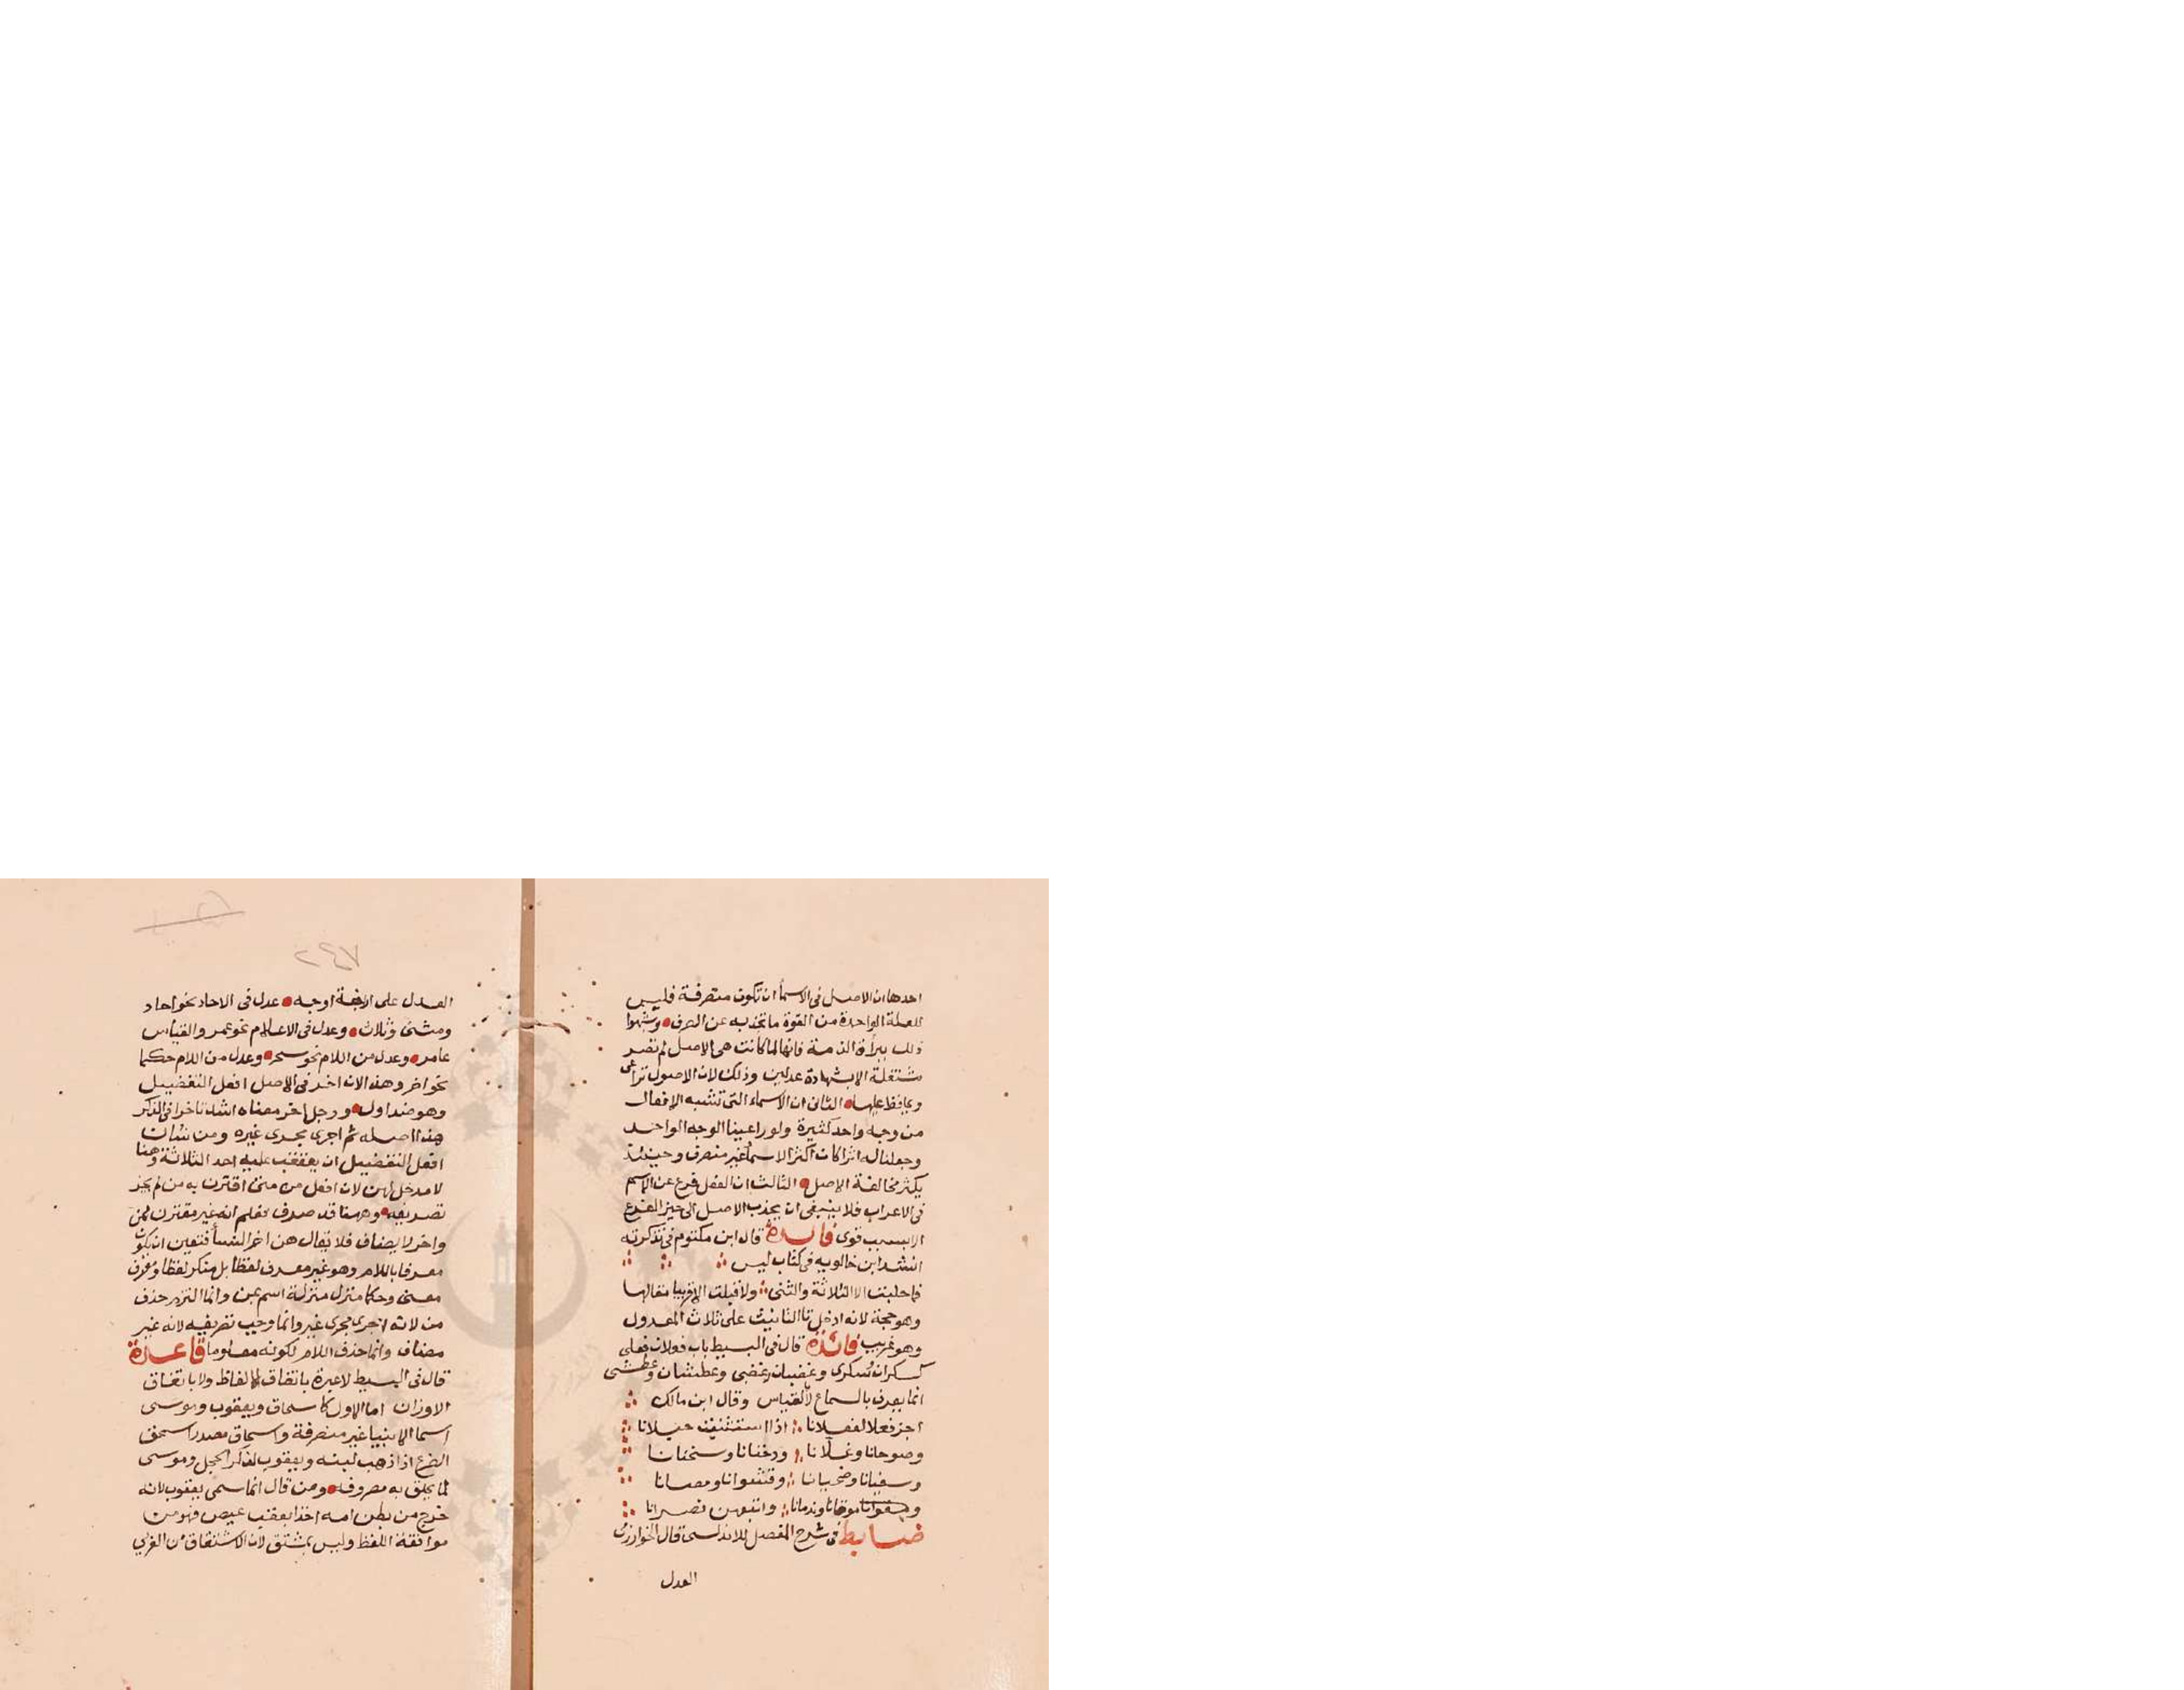 احدها ان الاصل فى الاسماء ان تكون منصرفة فليس
للعلة الواحدة من القوة ما تجذبه عن الصرف وشبهوا
ذلك ببرأة الذمة فانها لما كانت هى الاصل لم تصر
مشتغلة الا بشهادة عدلين وذلك لان الاصول تراعى
ويحافظ عليها الثانى ان الاسماء التى تشبه الافعال
من وجه واحد كثيرة ولو راعينا الوجه الواحد
وجعلنا له اثرا كان اكثر الاسماء غير منصرف وحينئذ
يكثر مخالفة الاصل الثالث ان الفعل فرع عن الاسم
فى الاعراب فلا ينبغى ان يجذب الاصل الى حيز الفرع
الا بسبب قوى فائدة قال ابن مكتوم فى تذكرته
انشد ابن خالويه فى كتاب ليس
فما حلبت الا الثلاثة والثنى ولا قيلت الا قريبا مقالها
وهو حجة لانه ادخل تا التانيث على ثلاث المعدول
وهو غريب فائدة قال فى البسيط باب فعلان فعلى
كسكران وسكرى وغضبان وغضبى وعطشان وعطشى
انما يعرف بالسماع لا القياس وقال ابن مالك
اجز فعلى لفعلانا اذا استثنيت حبلانا
وصوحانا وعلانا ودخنانا وسخنانا
وسفيانا وضحيانا وقشوانا ومصانا
وموتانا وندمانا واتبعهن نصرانا
ضابط فى شرح المفصل للاندلسى قال الخوارزمى
العدل
٢٤٧
العدل على اربعة اوجه عدل فى الاعداد نحو احاد
ومثنى وثلاث وعدل فى الاعلام نحو عمر والقياس
عامر وعدل من اللام نحو سحر وعدل من اللام حكما
نحو اخر وهذا لان اخر فى الاصل افعل التفضيل
وهو ضد اول ورجل اخر معناه اشد تاخرا فى الذكر
هذا اصله ثم اجرى مجرى غيره ومن شان
افعل التفضيل ان يعتقب عليه احد الثلاثة وهنا
لا مدخل لمن لان افعل من متى اقترن به من لم يجز
تصريفه وهنا قد صرف فعلم انه غير مقترن بمن
واخر لا يضاف فلا يقال هن اخر النسأ فتعين ان يكون
معرفا باللام وهو غير معرف لفظا بل منكر لفظا ومعرف
معنى وحكما منزل منزلة اسم بمن وانما التزم حذف
من لانه اجرى مجرى غير وانما وجب تصريفه لانه غير
مضاف وانما حذف اللام لكونه معلوما قاعدة
قال فى البسيط لا عبرة باتفاق الالفاظ ولا باتفاق
الاوزان اما الاول كاسحاق ويعقوب وموسى
اسما الانبيا غير منصرفة واسحاق مصدر اسحق
الضرع اذا ذهب لبنه ويعقوب لذكر الحجل وموسى
لما يحلق به مصروفه ومن قال انما سمى يعقوب لانه
خرج من بطن امه اخذا بعقب عيص فهو من
موافقة اللفظ وليس بمشتق لان الاشتقاق من العربى